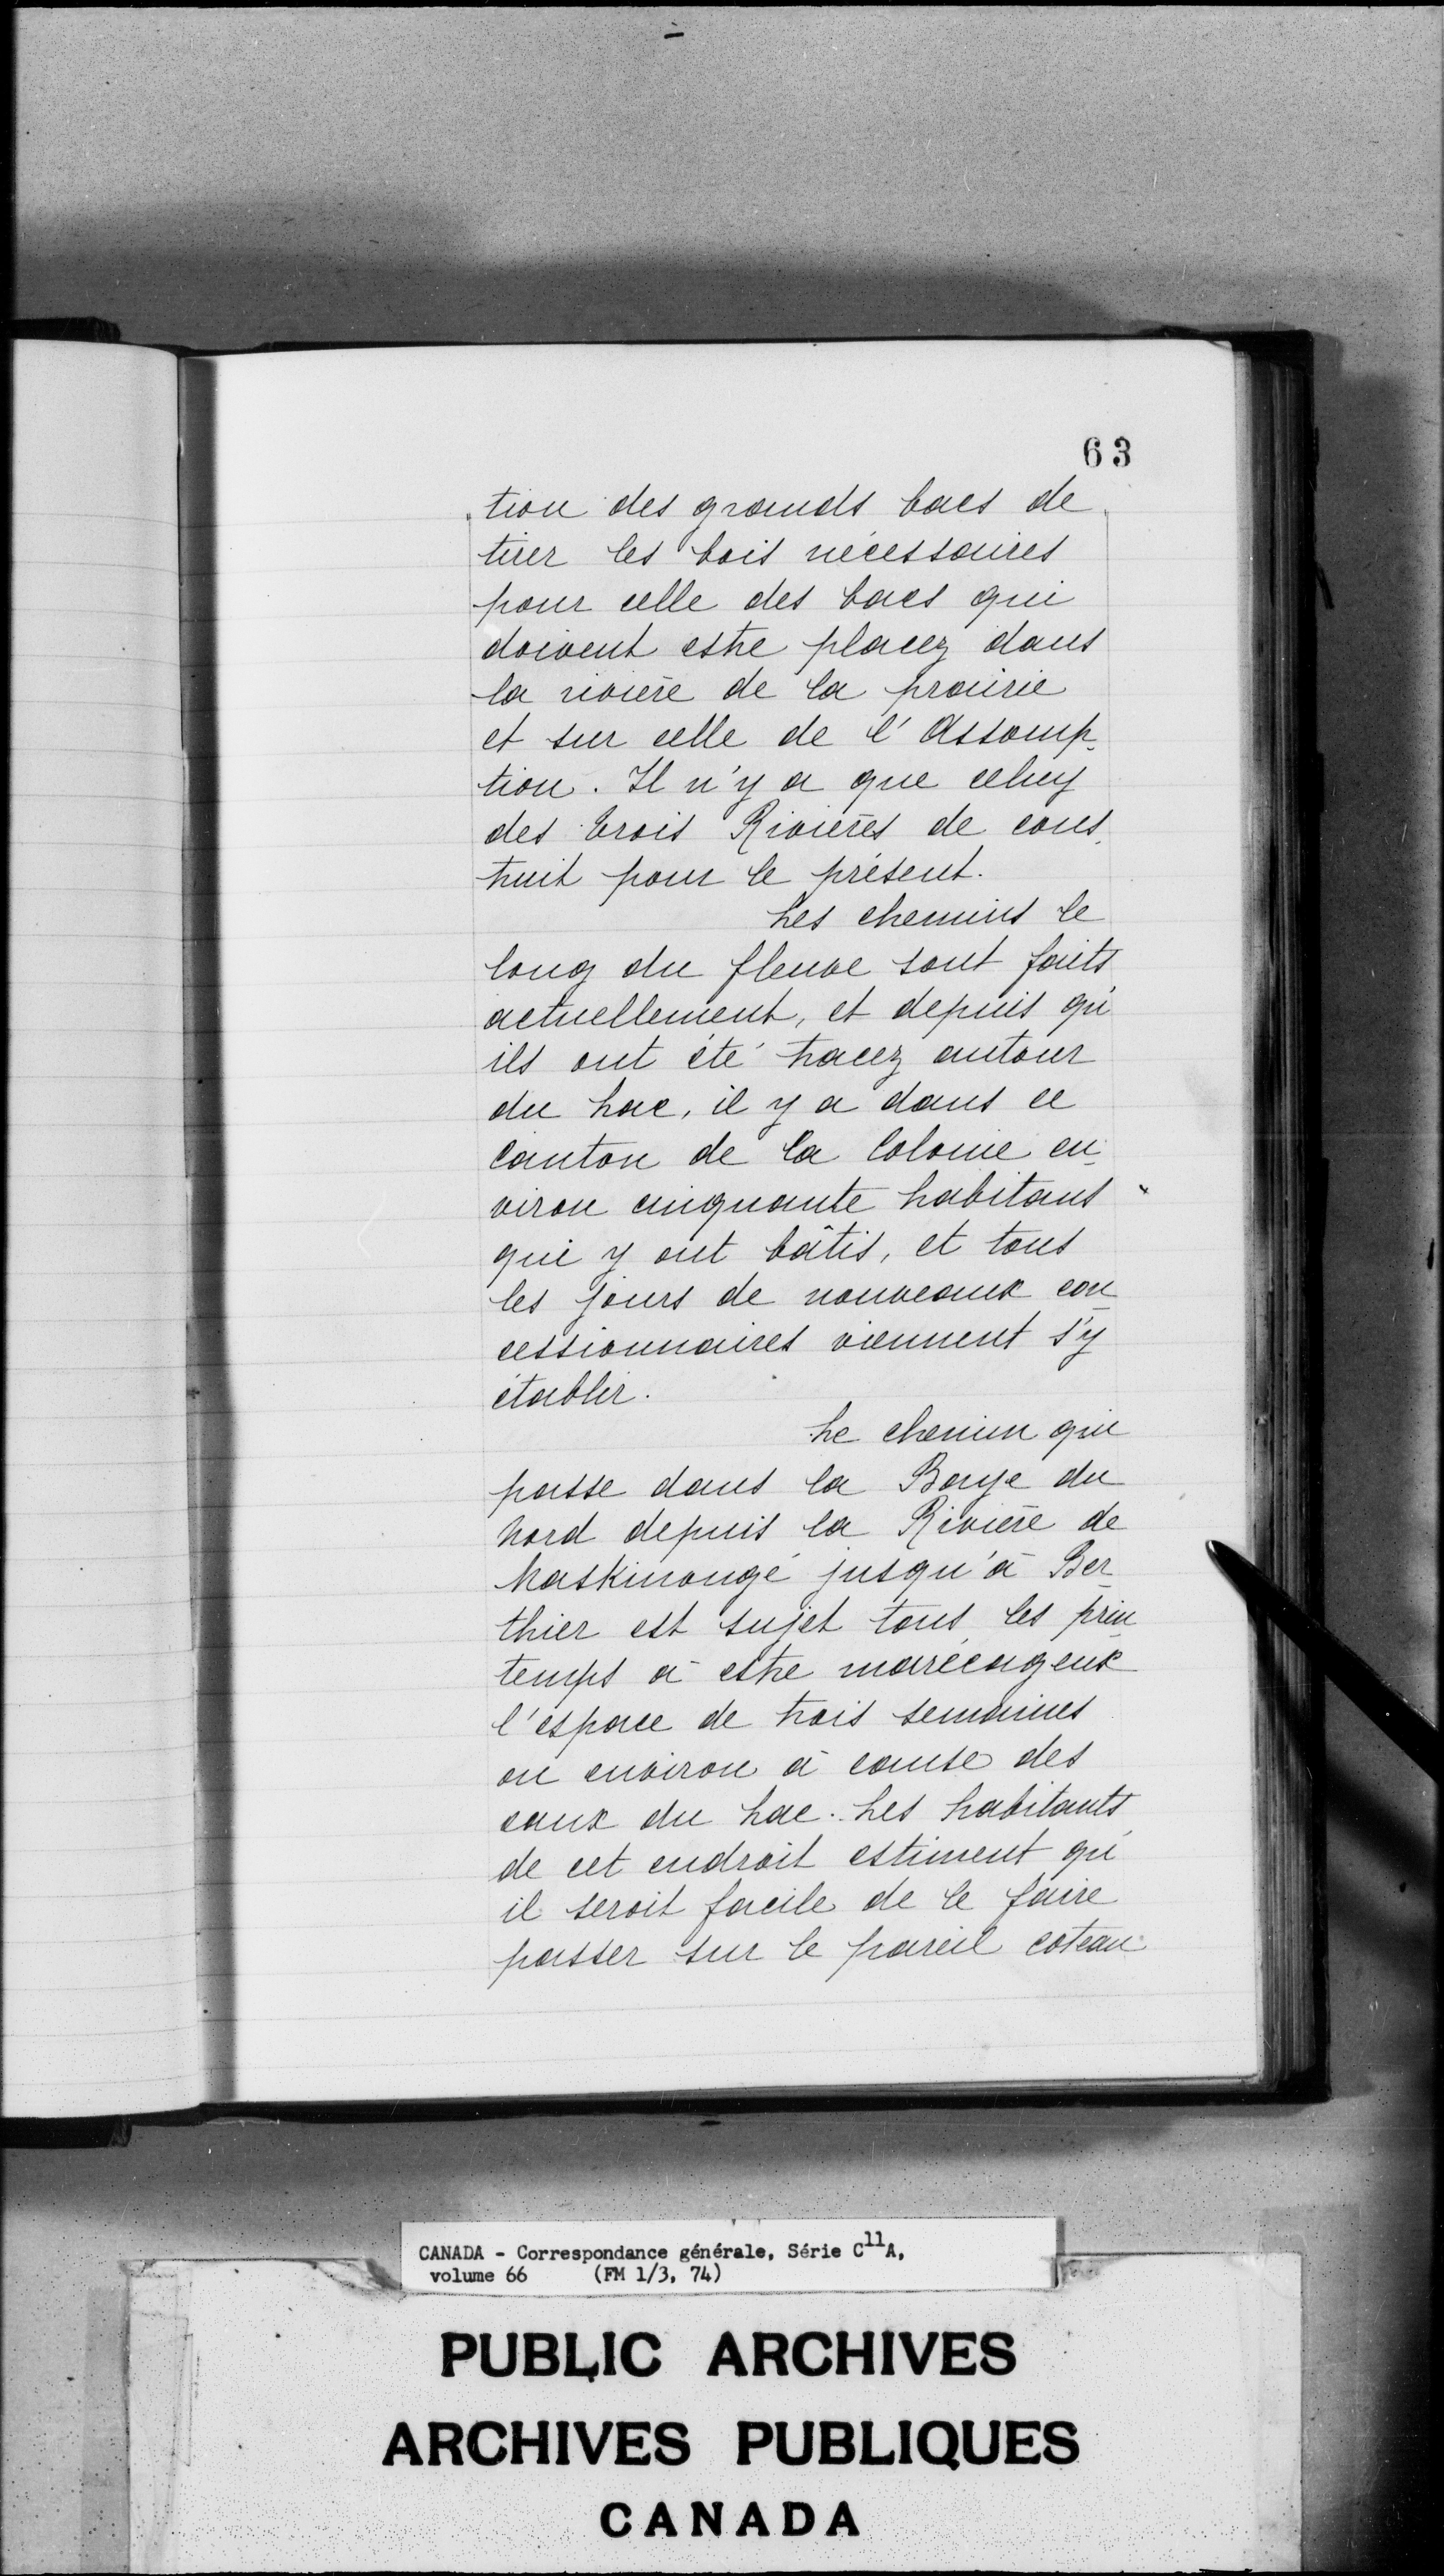 63
tion des grands bacs de
tirer les bois nécessaires
pour celle des bacs qui
doivent estre placez dans
la rivière de la prairie
et sur celle de l'Assomp-
tion. Il n'y a que celuy
des trois Rivières de cons-
truit pour le présent.
Les chemins le
long du fleuve sont faits
actuellement, et depuis qu'
ils ont été tracez autour
du Lac, il y a dans ce
canton de la Colonie en-
viron cinquante habitans
qui y ont bâtis, et tous
les jours de nouveaux con-
cessionnaires viennent s'y
établir.
Le chemin qui
passe dans la Baye du
Nord depuis la Rivière de
Maskinongé jusqu'à Ber-
thier est sujet tous les prin-
temps à estre marécageux
l'éspace de trois semaines
ou environ à cause des
eaux du Lac. Les habitants
de cet endroit estiment qu'
il seroit facile de le faire
passer sur le pareil coteau
CANADA - Correspondance générale, Série C11A,
volume 66 (FM 1/3, 74)
PUBLIC ARCHIVES
ARCHIVES PUBLIQUES
CANADA